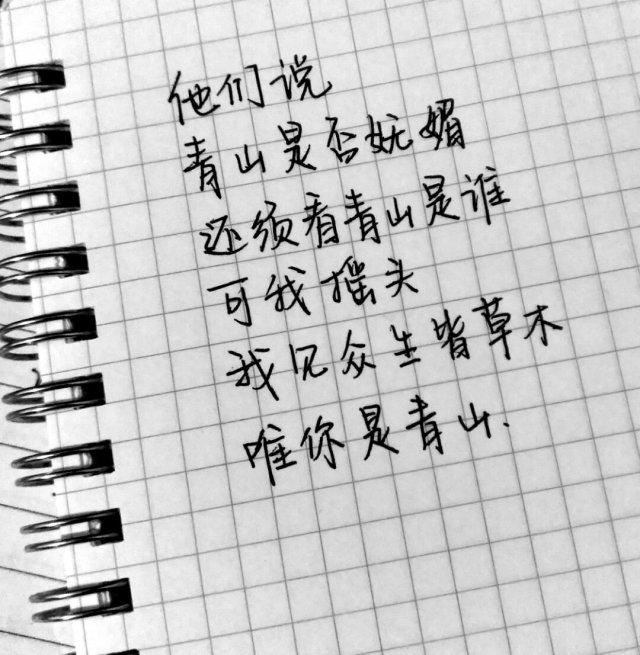 他们说
青山是否妩媚
还须看青山是谁
可我摇头
我见众生皆草木
唯你是青山.